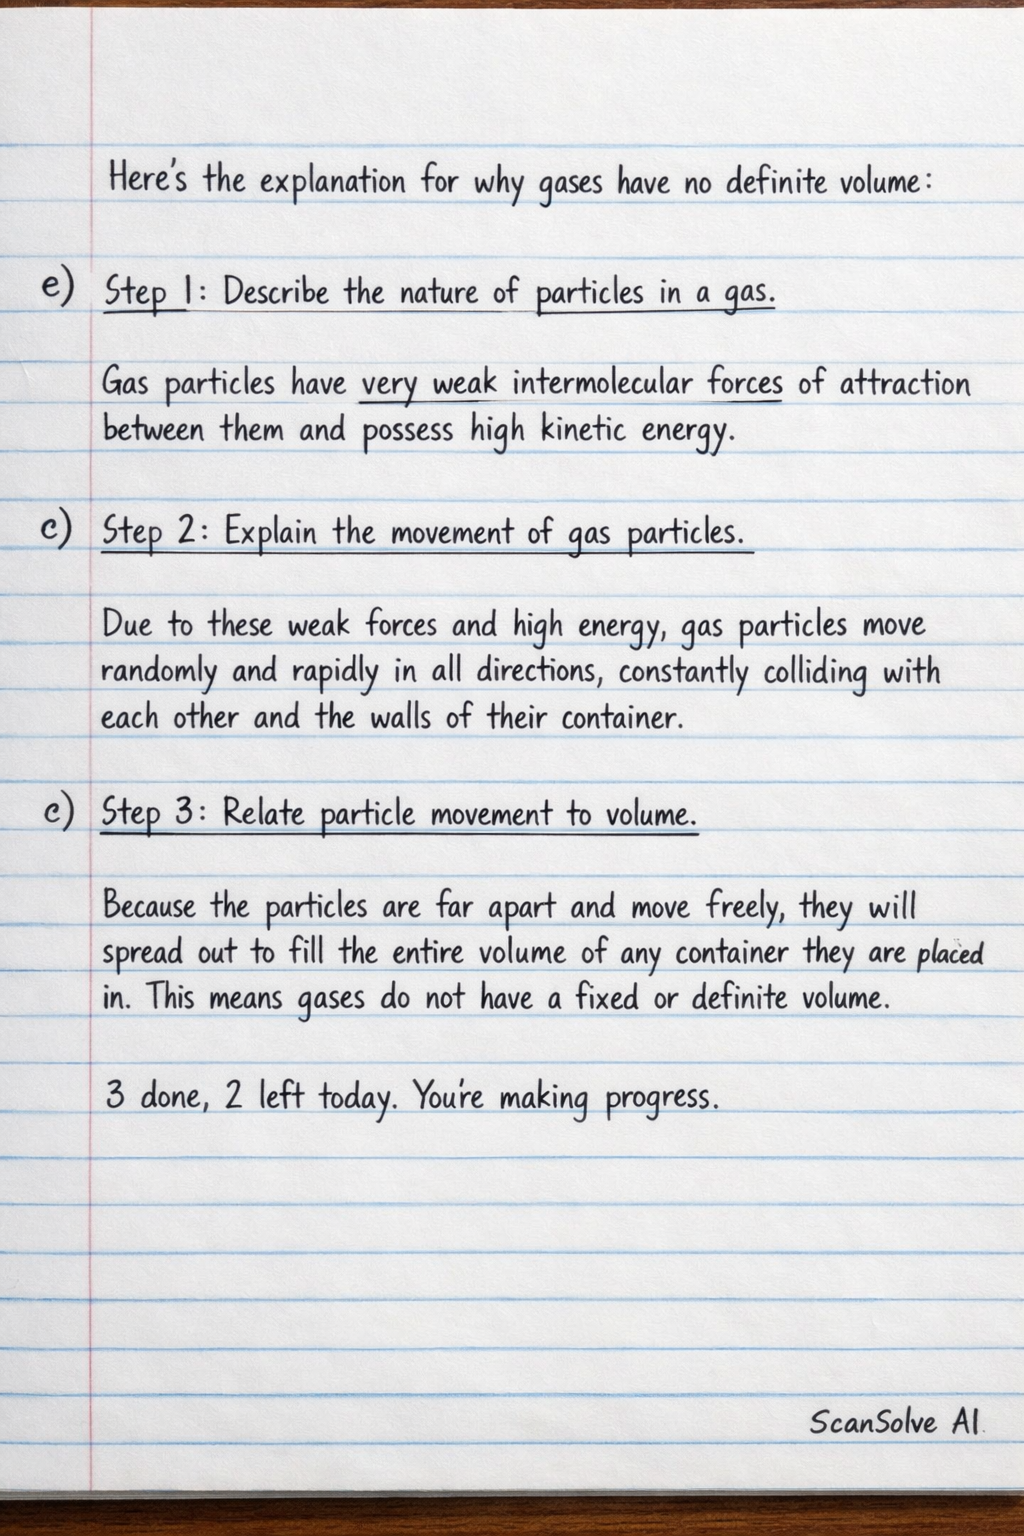 Here's the explanation for why gases have no definite volume:
e) Step 1: Describe the nature of particles in a gas.
Gas particles have very weak intermolecular forces of attraction
between them and possess high kinetic energy.
c) Step 2: Explain the movement of gas particles.
Due to these weak forces and high energy, gas particles move
randomly and rapidly in all directions, constantly colliding with
each other and the walls of their container.
e) Step 3: Relate particle movement to volume.
Because the particles are far apart and move freely, they will
spread out to fill the entire volume of any container they are placed
in. This means gases do not have a fixed or definite volume.
3 done, 2 left today. You're making progress.
ScanSolve AI